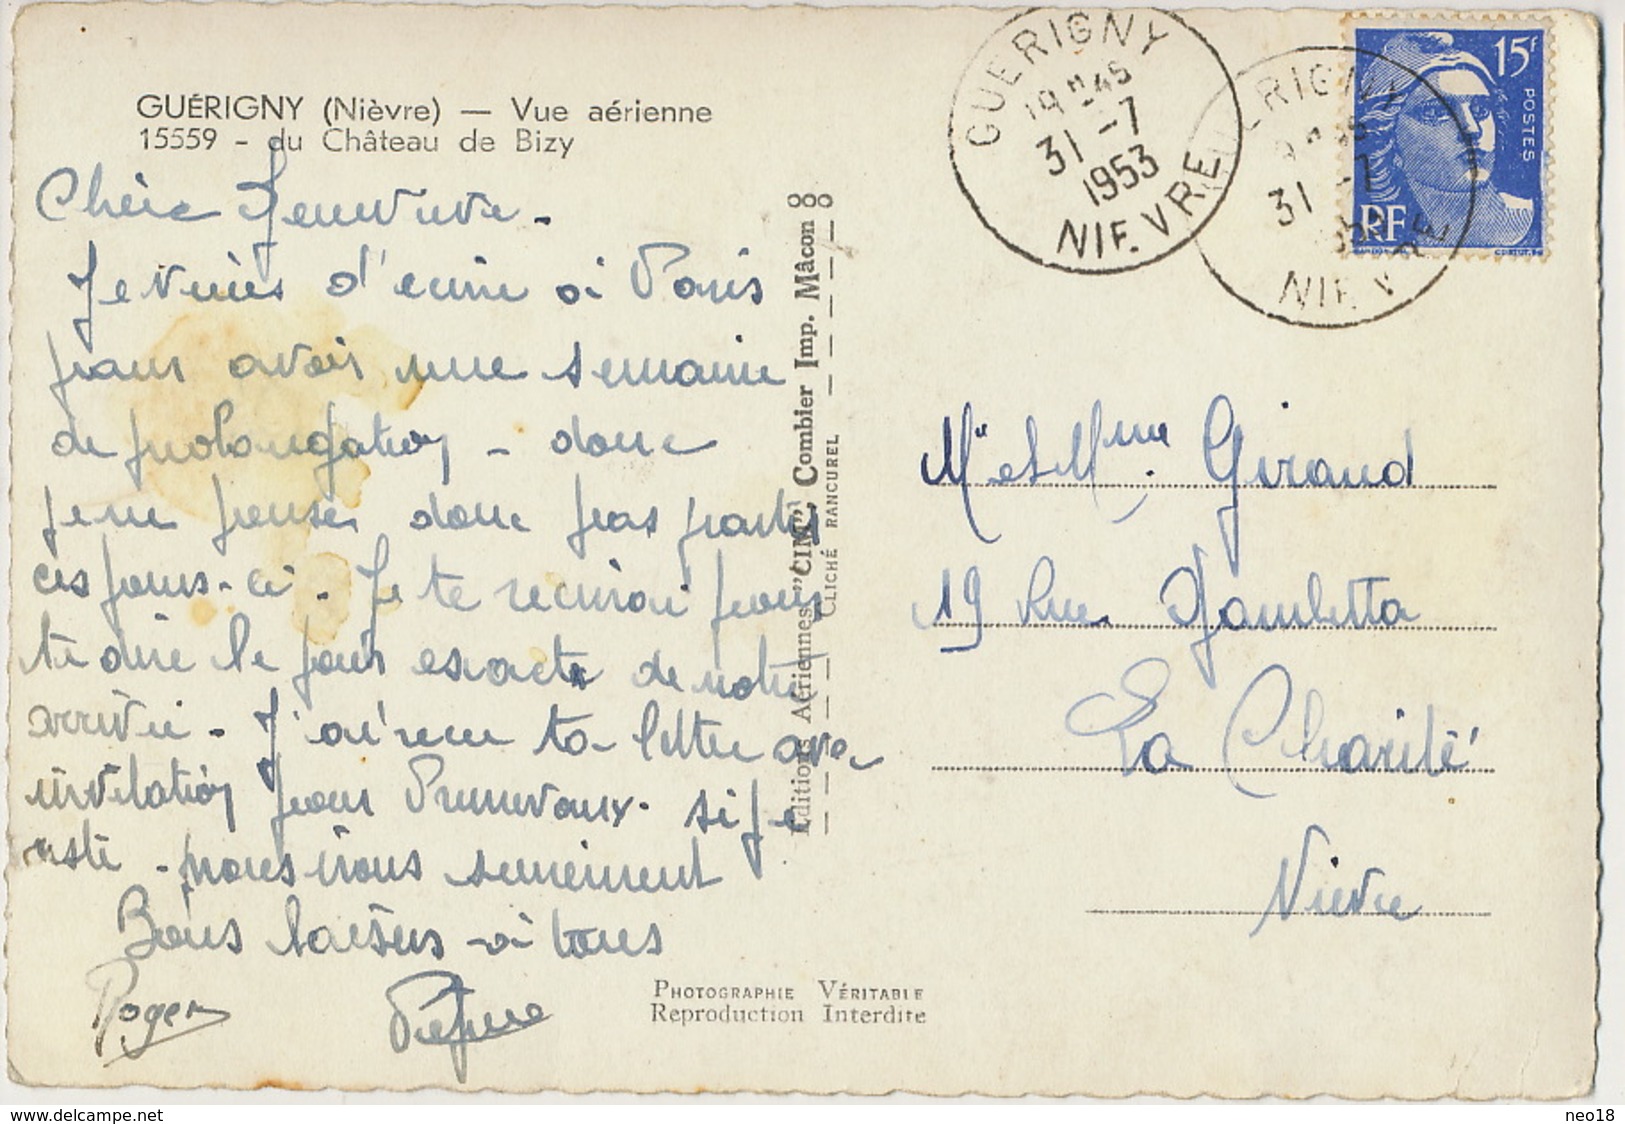 GUÉRIGNY (Nièvre) — Vue aérienne
15559 - du Château de Bizy
Chère Geneviève -
Je viens d'écrire à Paris
pour avoir une semaine
de prolongation - donc
je ne pense donc pas partir
ces jours-ci. Je te récrirai pour
te dire le jour exacte de notre
arrivée - J'ai reçu ta lettre avec
invitation pour Prémevaux. si je
reste - nous irons surement
Bons baisers à tous
Roger
Editions Aériennes "CIM", Combier Imp. Mâcon
CLICHÉ RANCUREL
GUERIGNY
19 H 45
31 - 7
1953
NIEVRE
GUERIGNY
31 - 7
NIEVRE
15F
POSTES
RF
Mr et Mme Giraud
19 Rue Gambetta
La Charité
Nièvre
PHOTOGRAPHIE VÉRITABLE
Reproduction Interdite
www.delcampe.net
neo18